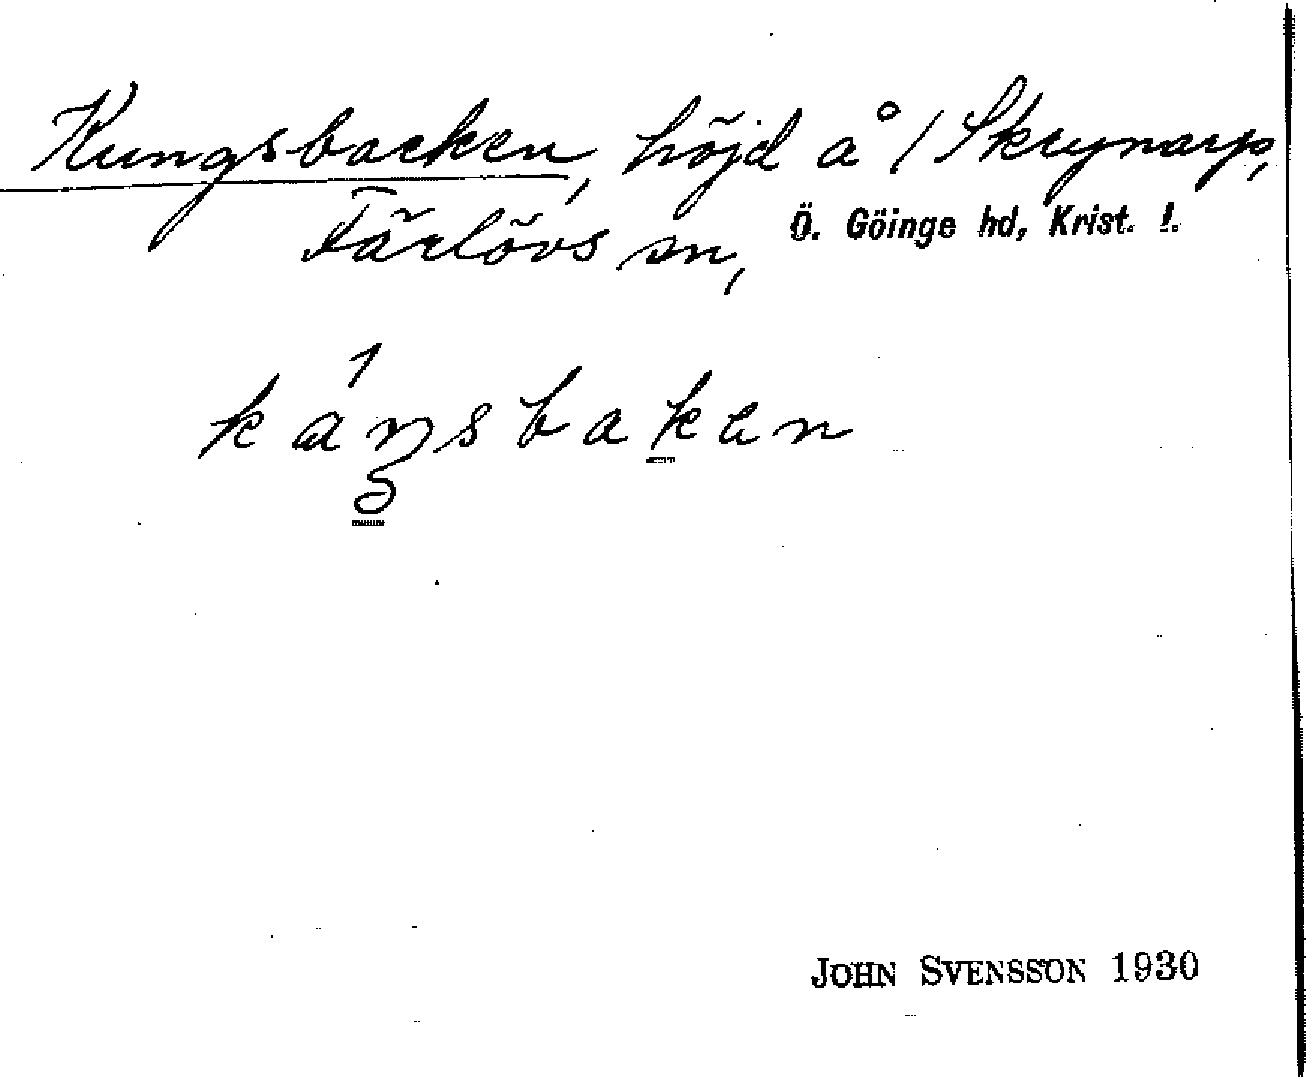 Kungsbacken, höjd å / Skrynarp,
Färlövs sn, Ö. Göinge hd, Krist. l.
JOHN SVENSSON 1930